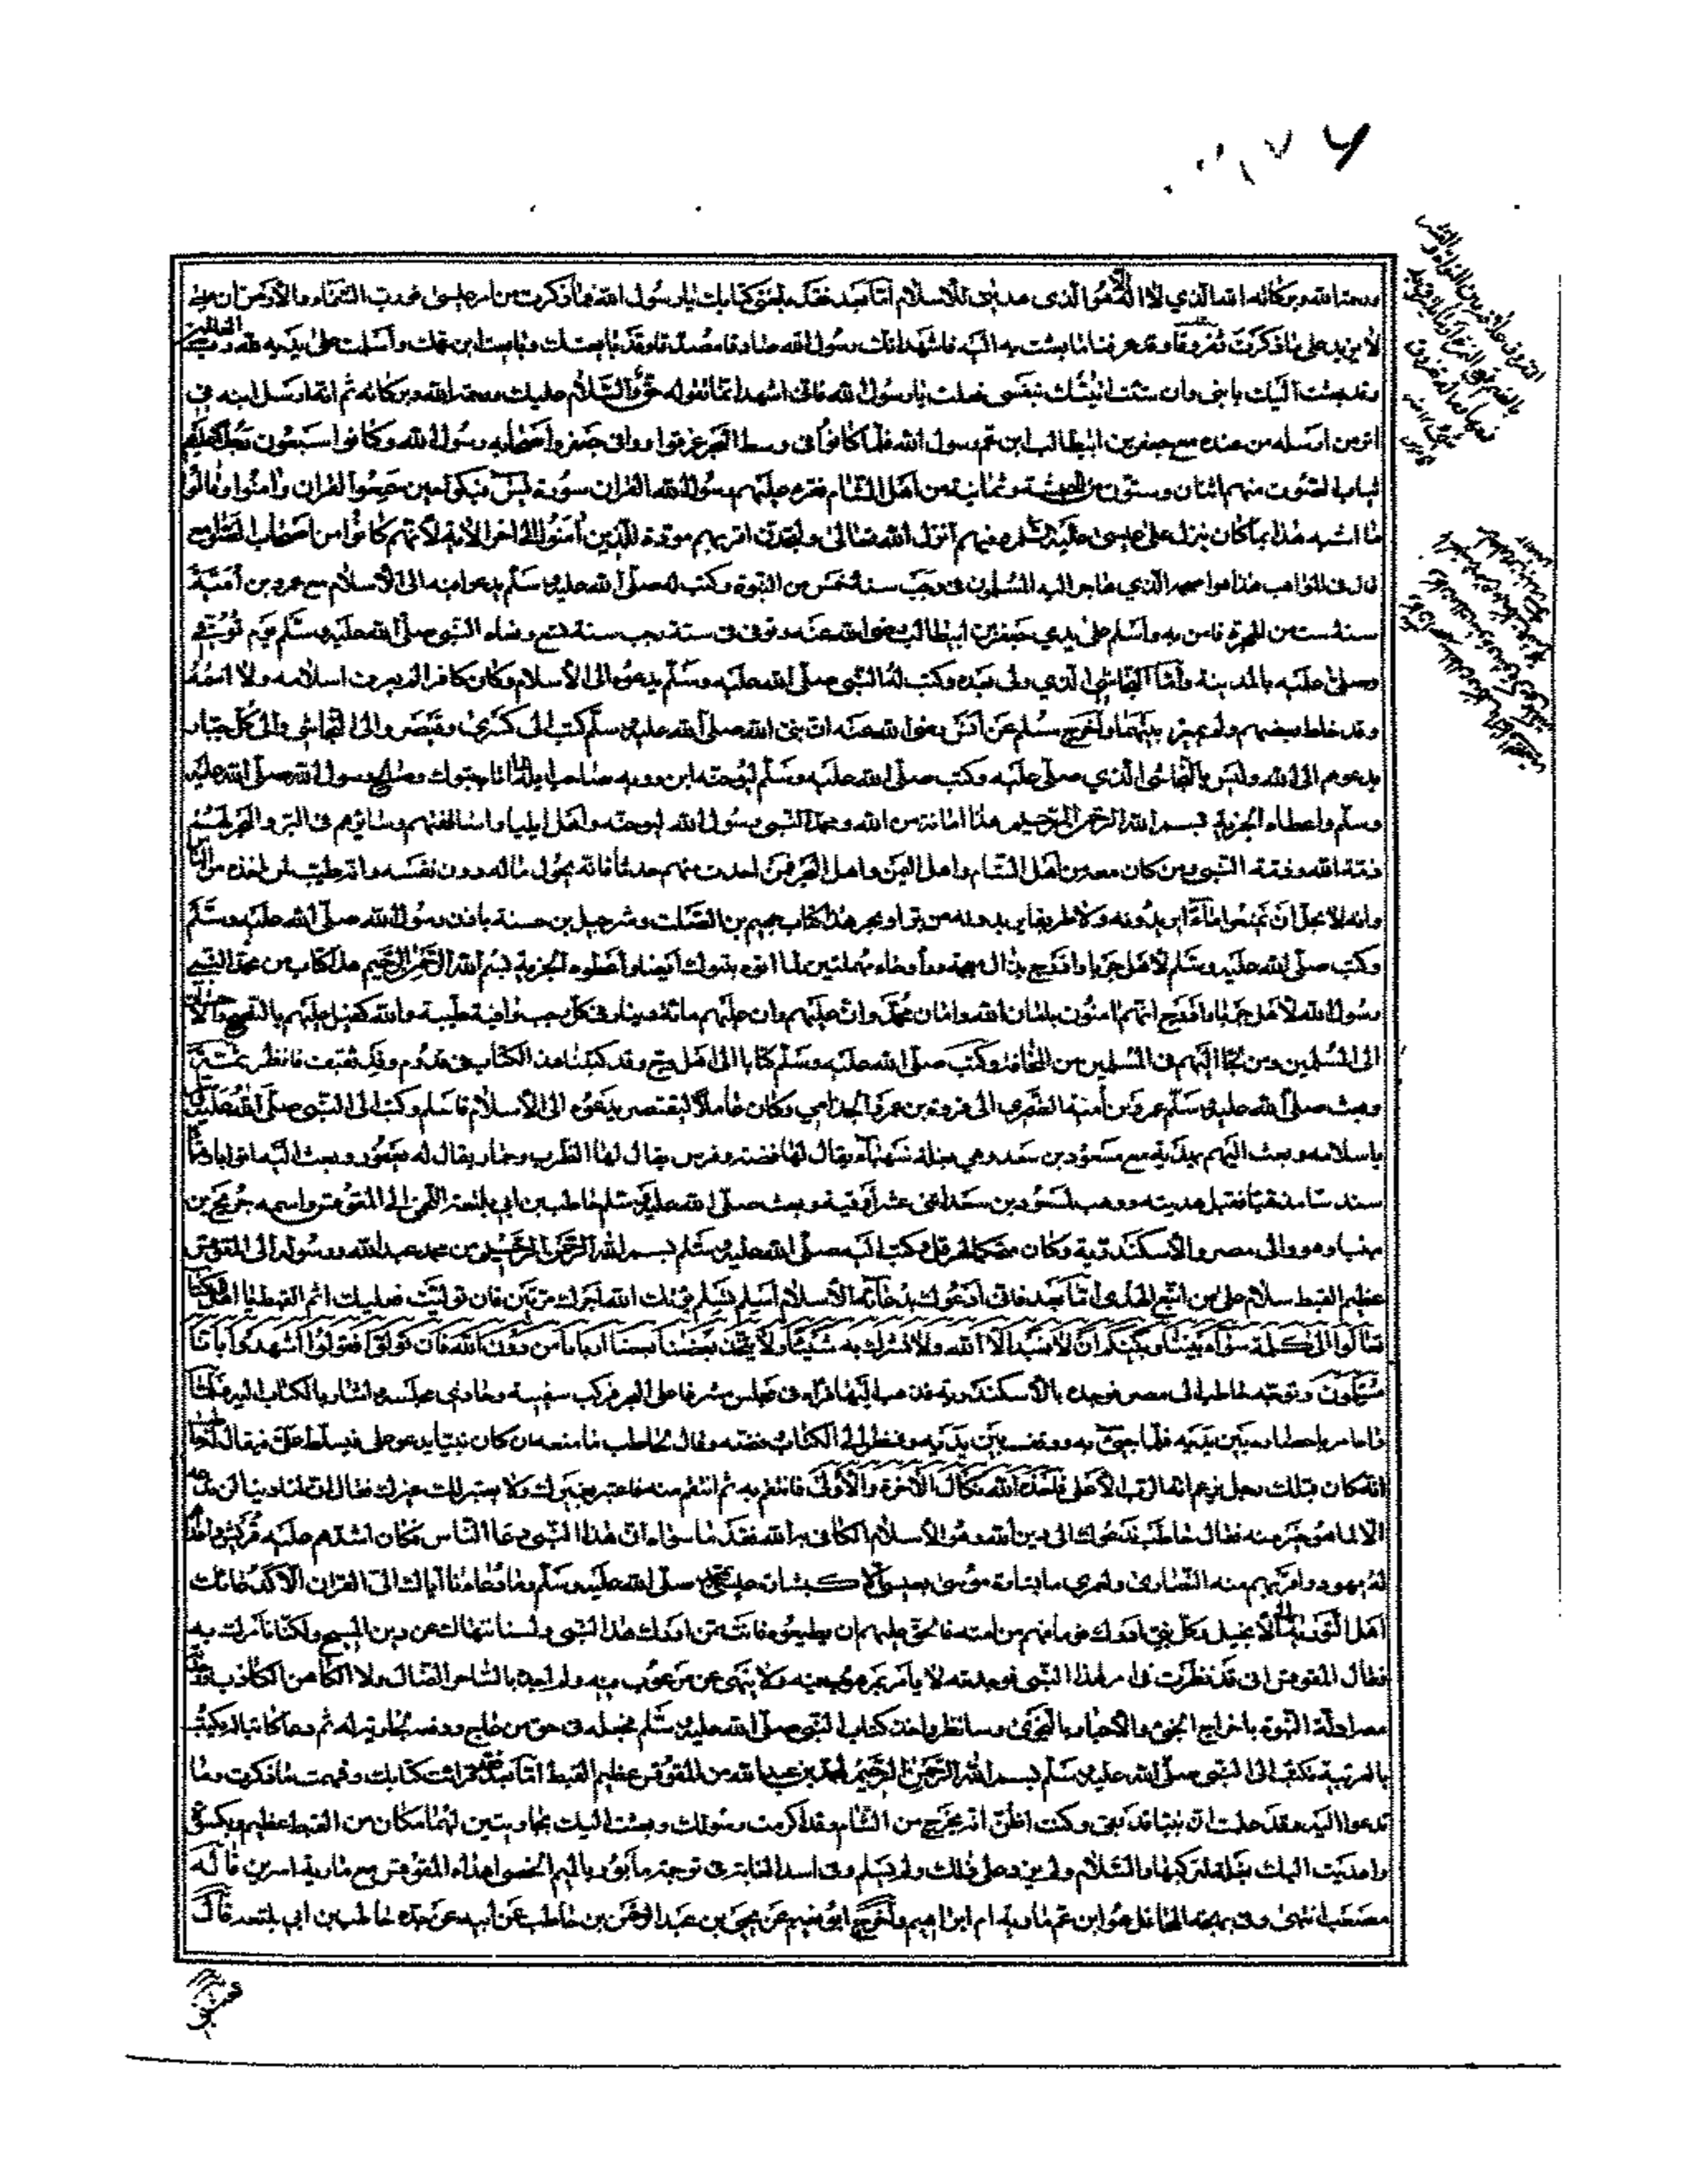 ورحمة الله وبركاته الله الذي لا اله الا هو الذي هداني للاسلام اما بعد فقد بلغني كتابك يا رسول الله فما ذكرت من امر عيسى فورب السماء والارض ان عيسى
لا يزيد على ما ذكرت ثفروقا وقد عرفنا ما بعثت به الينا فاشهد انك رسول الله صادقا مصدقا وقد بايعتك وبايعت ابن عمك واسلمت على يديه لله رب العالمين
وقد بعثت اليك بابني وان شئت اتيتك بنفسي فعلت يا رسول الله فاني اشهد ان ما تقوله حق والسلام عليك ورحمة الله وبركاته ثم انه ارسل ابنه في
اثر من ارسله من عنده مع جعفر بن ابيطالب ابن عم رسول الله فلما كانوا في وسط البحر غرقوا ووافى جعفر واصحابه رسول الله وكانوا سبعون رجلا عليهم
ثياب الصوف منهم اثنان وستون من الحبشة وثمانية من اهل الشام فقرء عليهم رسول الله القران سورة يس فبكوا حين سمعوا القران وامنوا وقالوا
ما اشبه هذا بما كان ينزل على عيسى عليه السلام وفيهم انزل الله تعالى ولتجدن اقربهم مودة للذين امنوا الى اخر الاية لانهم كانوا من اصحاب الصوامع
قال في المواهب هذا هو اصحمة الذي هاجر اليه المسلمون في رجب سنة خمس من النبوة وكتب له صلى الله عليه وسلم يدعوا منه الى الاسلام مع عمرو بن امية
سنة ست من الهجرة فامن به واسلم على يدي جعفر بن ابيطالب رضي الله عنه وتوفي في سنة رجب سنة تسع ونعاه النبي صلى الله عليه وسلم يوم توفي
وصلى عليه بالمدينة واما النجاشي الذي ولي بعده وكتب له النبي صلى الله عليه وسلم يدعوه الى الاسلام وكان كافرا لم يعرف اسلامه ولا اسمه
وقد خلط بعضهم ولم يميز بينهما واخرج مسلم عن انس رضي الله عنه ان نبي الله صلى الله عليه وسلم كتب الى كسرى وقيصر والى النجاشي والى كل جبار
يدعوهم الى الله وليس بالنجاشي الذي صلى عليه وكتب صلى الله عليه وسلم ليوحنه ابن رويه صاحب ايلة لما اتاه بتبوك وصالح رسول الله صلى الله عليه
وسلم واعطاه الجزية بسم الله الرحمن الرحيم هذا امانة من الله ومحمد النبي رسول الله ليوحنه واهل ايليا واساقفتهم وسائرهم في البر والبحر لهم
ذمة الله وذمة النبي ومن كان معه من اهل الشام واهل اليمن واهل البحر فمن احدث منهم حدثا فانه يحول ماله دون نفسه وانه طيب لمن اخذه من الناس
وانه لا يحل ان يمنعوا ماء يردونه ولا طريقا يريدونه من بر او بحر هذا كتاب جهيم بن الصلت وشرحبيل بن حسنة باذن رسول الله صلى الله عليه وسلم
وكتب صلى الله عليه وسلم لاهل جربا واذرح بذال معجمة وراء وحاء مهملتين لما اتوه بتبوك ايضا واعطوه الجزية بسم الله الرحمن الرحيم هذا كتاب من محمد النبي
رسول الله لاهل جربا واذرح انهم امنون بامان الله وامان محمد وان عليهم وان عليهم مائة دينار في كل رجب وافية طيبة والله كفيل عليهم بالنصح والاحسان
الى المسلمين ومن لجا اليهم من المسلمين من المخافة وكتب صلى الله عليه وسلم كتابا الى اهل وج وقد
وبعث صلى الله عليه وسلم عمرو بن امية الضمري الى فروة بن عمرو الجذامي وكان عاملا لقيصر يدعوه الى الاسلام فاسلم وكتب الى النبي صلى الله عليه وسلم
باسلامه وبعث اليهم بهدية مع مسعود بن سعد وهي بغلة شهباء يقال لها فضة وفرس يقال لها الظرب وحمار يقال له يعفور وبعث اليه اثوابا وقباء
سندسا مذهبا فقبل هديته ووهب لمسعود بن سعد اثنى عشر اوقية وبعث صلى الله عليه وسلم حاطب بن ابي بلتعة اللخمي الى المقوقس واسمه جريج بن
مينا وهو والي مصر والاسكندرية وكان متمكا لهرقل وكتب اليه صلى الله عليه وسلم بسم الله الرحمن الرحيم من محمد عبد الله ورسوله الى المقوقس
عظيم القبط سلام على من اتبع الهدى اما بعد فاني ادعوك بدعاية الاسلام اسلم تسلم يؤتك الله اجرك مرتين فان توليت فعليك اثم القبط يا اهل الكتاب
تعالوا الى كلمة سواء بيننا وبينكم ان لا نعبد الا الله ولا نشرك به شيئا ولا يتخذ بعضنا بعضا اربابا من دون الله فان تولوا فقولوا اشهدوا بانا
مسلمون وتوجه حاطب الى مصر فوجده بالاسكندرية فذهب اليها فرآه في مجلس مشرفا على البحر فركب سفينة وحاذى مجلسه واشار بالكتاب اليه فلما
رآه امر باحضاره بين يديه فلما جيء به ووقف بين يديه ونظر الى الكتاب فضه وقال لحاطب ما منعه ان كان نبيا يدعو علي فيسلط علي فقال له حاطب
انه كان قبلك رجل يزعم انه الرب الاعلى فاخذه الله نكال الاخرة والاولى فانتقم به ثم انتقم منه فاعتبر بغيرك ولا يعتبر بك غيرك فقال ان لنا دينا لن ندعه
الا لما هو خير منه فقال حاطب ندعوك الى دين الله وهو الاسلام الكافي به الله فقد ما سواه ان هذا النبي دعا الناس فكان اشدهم عليه قريش واعداهم
له يهود واقربهم منه النصارى ولعمري ما بشارة موسى بعيسى الا كبشارة عيسى بمحمد صلى الله عليه وسلم وما دعاؤنا اياك الى القران الا كدعائك
اهل التورية الى الانجيل وكل نبي ادرك قوما فهم من امته فالحق عليهم ان يطيعوه فانت ممن ادرك هذا النبي ولسنا ننهاك عن دين المسيح ولكنا نأمرك به
فقال المقوقس اني قد نظرت في امر هذا النبي فوجدته لا يأمر بمزهود فيه ولا ينهى عن مرغوب فيه ولم اجده بالساحر الضال ولا الكاهن الكاذب ووجدت
معه ادلة النبوة باخراج الخبء والاخبار بالنجوى وسانظر واخذ كتاب النبي صلى الله عليه وسلم فجعله في حق من عاج ودفعه لجارية له ثم دعا كاتبا له يكتب
بالعربية فكتب الى النبي صلى الله عليه وسلم بسم الله الرحمن الرحيم لمحمد بن عبد الله من المقوقس عظيم القبط اما بعد فقد قرأت كتابك وفهمت ما ذكرت وما
تدعوا اليه وقد علمت ان نبيا قد بقي وكنت اظن انه يخرج من الشام وقد اكرمت رسولك وبعثت اليك بجاريتين لهما مكان من القبط عظيم وبكسوة
واهديت اليك بغلة لتركبها والسلام ولم يزد على ذلك ولم يسلم وفي اسد الغابة في ترجمة مابور بالميم الخصي اهداه المقوقس مع مارية اسيرين قاله
مصعب انتهى وفي بهجة المحافل هو ابن عم مارية ام ابراهيم واخرج ابو نعيم عن يحيى بن عبد الرحمن بن حاطب عن ابيه عن جده حاطب بن ابي بلتعة قال